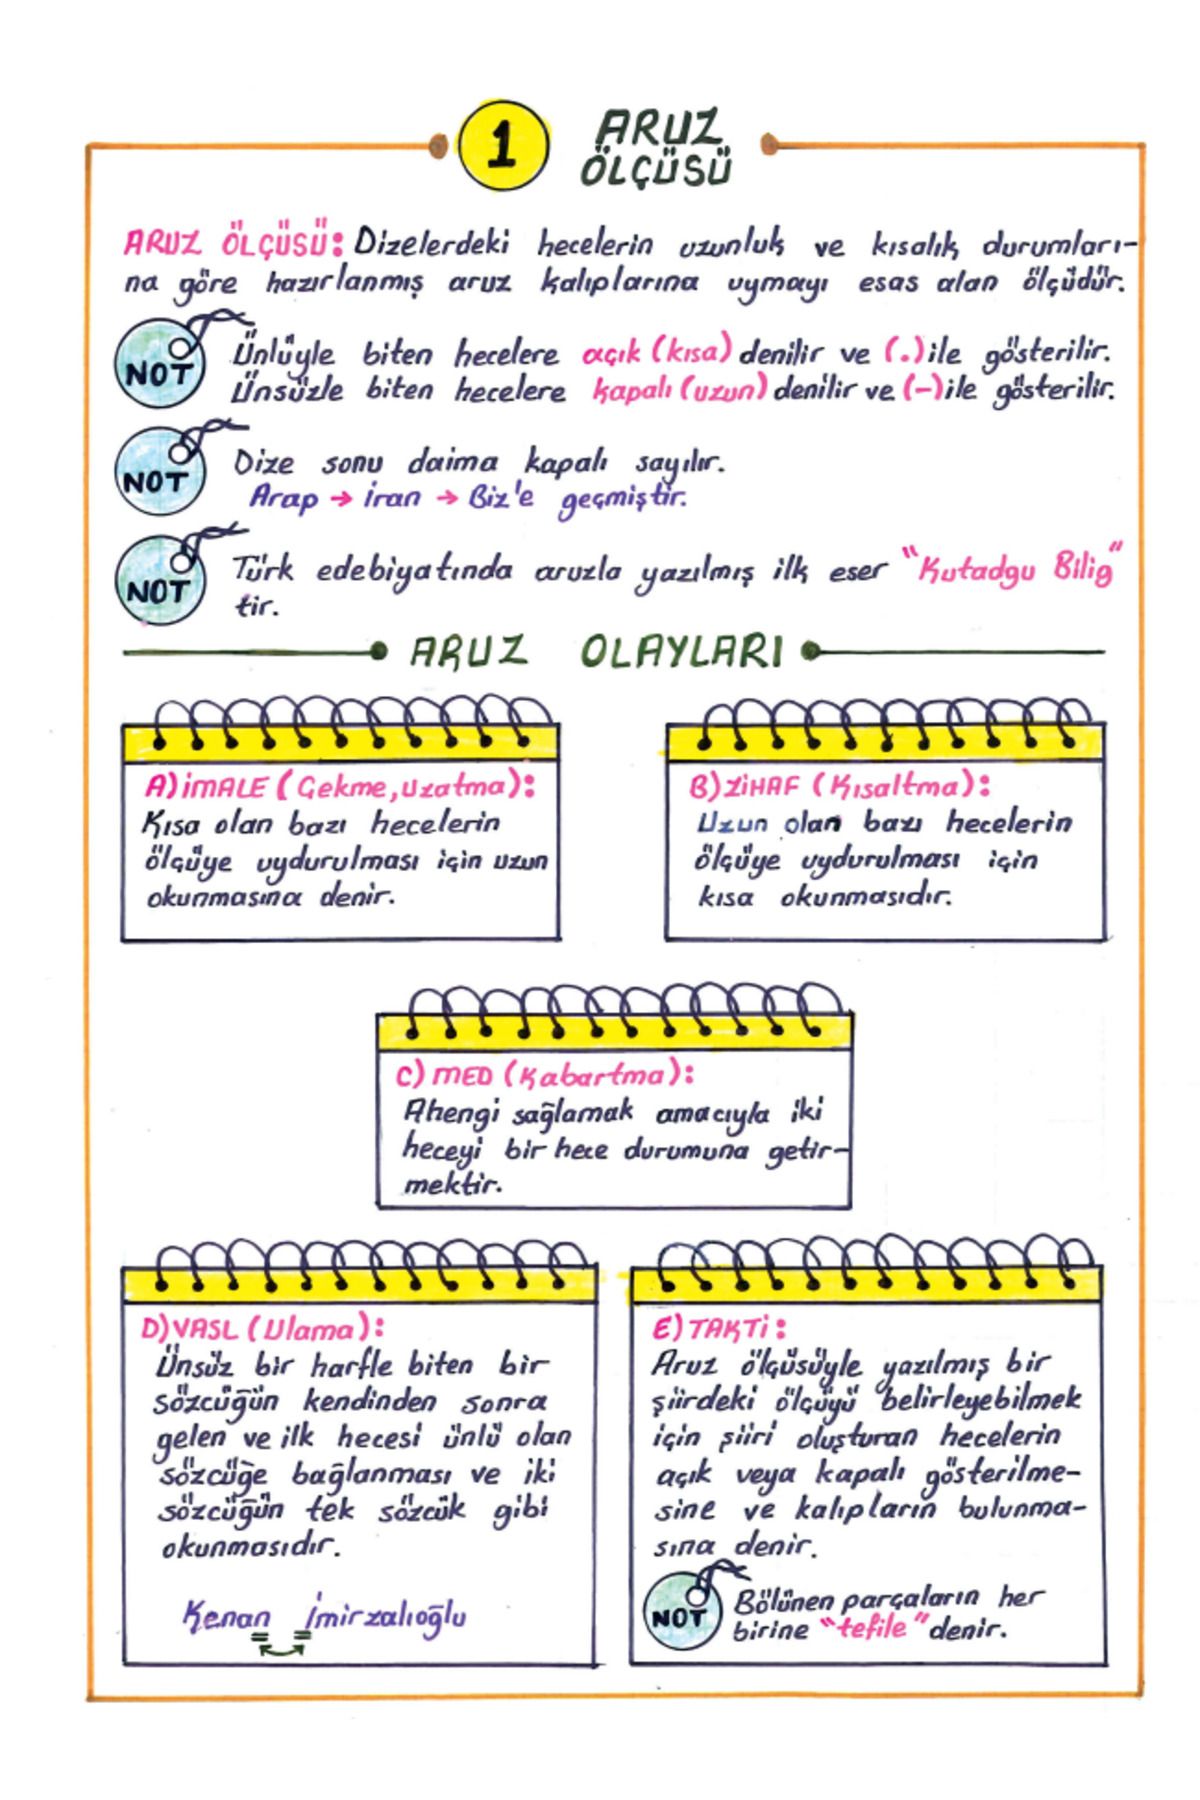 1
ARUZ
ÖLÇÜSÜ
ARUZ ÖLÇÜSÜ: Dizelerdeki hecelerin uzunluk ve kısalık durumları-
na göre hazırlanmış aruz kalıplarına uymayı esas alan ölçüdür.
NOT
Ünlüyle biten hecelere açık (kısa) denilir ve (.) ile gösterilir.
Ünsüzle biten hecelere kapalı (uzun) denilir ve (-) ile gösterilir.
NOT
Dize sonu daima kapalı sayılır.
Arap → İran → Biz'e geçmiştir.
NOT
Türk edebiyatında aruzla yazılmış ilk eser "Kutadgu Bilig"
tir.
ARUZ OLAYLARI
A) İMALE (Çekme, Uzatma):
Kısa olan bazı hecelerin
ölçüye uydurulması için uzun
okunmasına denir.
B) ZİHAF (Kısaltma):
Uzun olan bazı hecelerin
ölçüye uydurulması için
kısa okunmasıdır.
C) MED (Kabartma):
Ahengi sağlamak amacıyla iki
heceyi bir hece durumuna getir-
mektir.
D) VASL (Ulama):
Ünsüz bir harfle biten bir
sözcüğün kendinden sonra
gelen ve ilk hecesi ünlü olan
sözcüğe bağlanması ve iki
sözcüğün tek sözcük gibi
okunmasıdır.
Kenan İmirzalıoğlu
E) TAKTİ:
Aruz ölçüsüyle yazılmış bir
şiirdeki ölçüyü belirleyebilmek
için şiiri oluşturan hecelerin
açık veya kapalı gösterilme-
sine ve kalıpların bulunma-
sına denir.
NOT
Bölünen parçaların her
birine "tefile" denir.